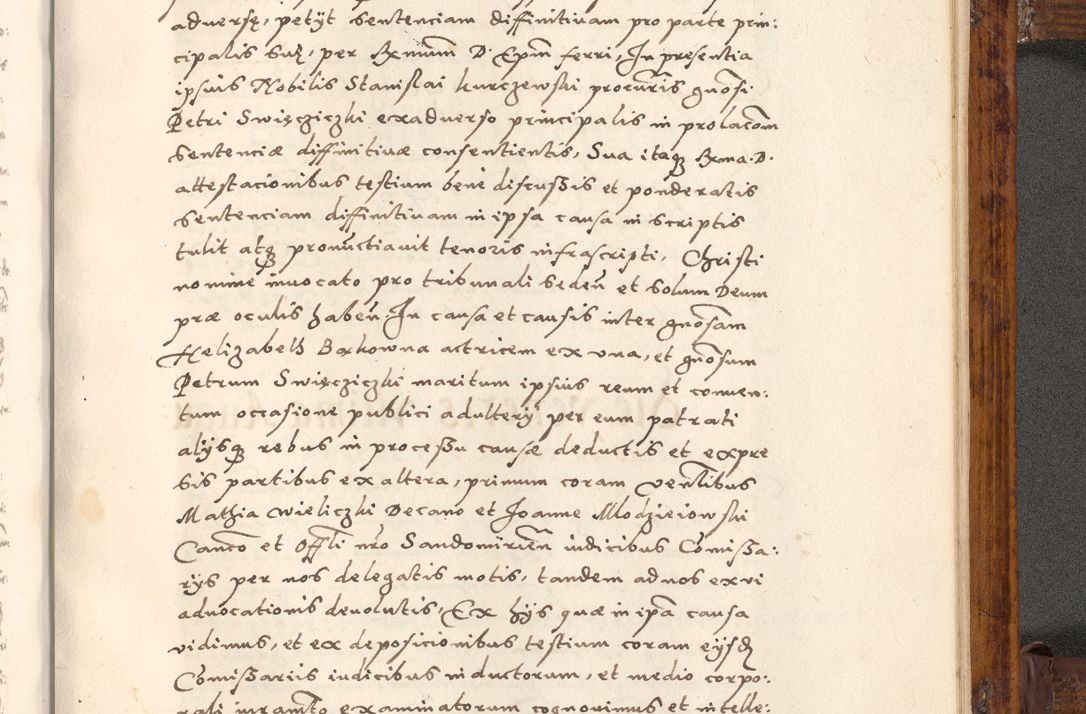 adversę, petijt sententiam diffinitiuam pro parte prin:
cipalis suę, per Rmum D. Epm ferri, In presentia
ipsius Nobilis Stanislai kurczewski procuris gnosi
Petri Swięcziczki exaduerso principalis in prolacom
sentenciæ diffinitiuæ consentientis, Sua itaq Rma. D.
attestacionibus testium bene discussis et ponderatis
sentenciam diffinitiuam in ipsa causa in scriptis
tulit atq pronunctiauit tenoris infrascripti, Christi
nomine inuocato pro tribunali seden et solum Deum
præ oculis haben. In causa et causis inter gnosam
Helizabeth Borkowna actricem ex una, et gnosum
Petrum Swięcziczki maritum ipsius reum et conuen:
tum occasione publici adulterij per eum patrati
alijsq rebus in processu causæ deductis et expre
sis partibus ex altera, primum coram ventibus
Mathia Wieliczki Decano et Joanne Mlodzieiowski
Canco et Offli nro Sandomirien iudicibus Comissa:
rijs per nos delegatis motis, tandem ad nos ex vi
aduocationis deuolutis, Ex hijs quæ in ipa causa
vidimus, et ex deposicionibus testium coram eijsd
Comissariis iudicibus inductorum, et medio corpo:
rali iuramto examinatorum cognouimus et intelle: